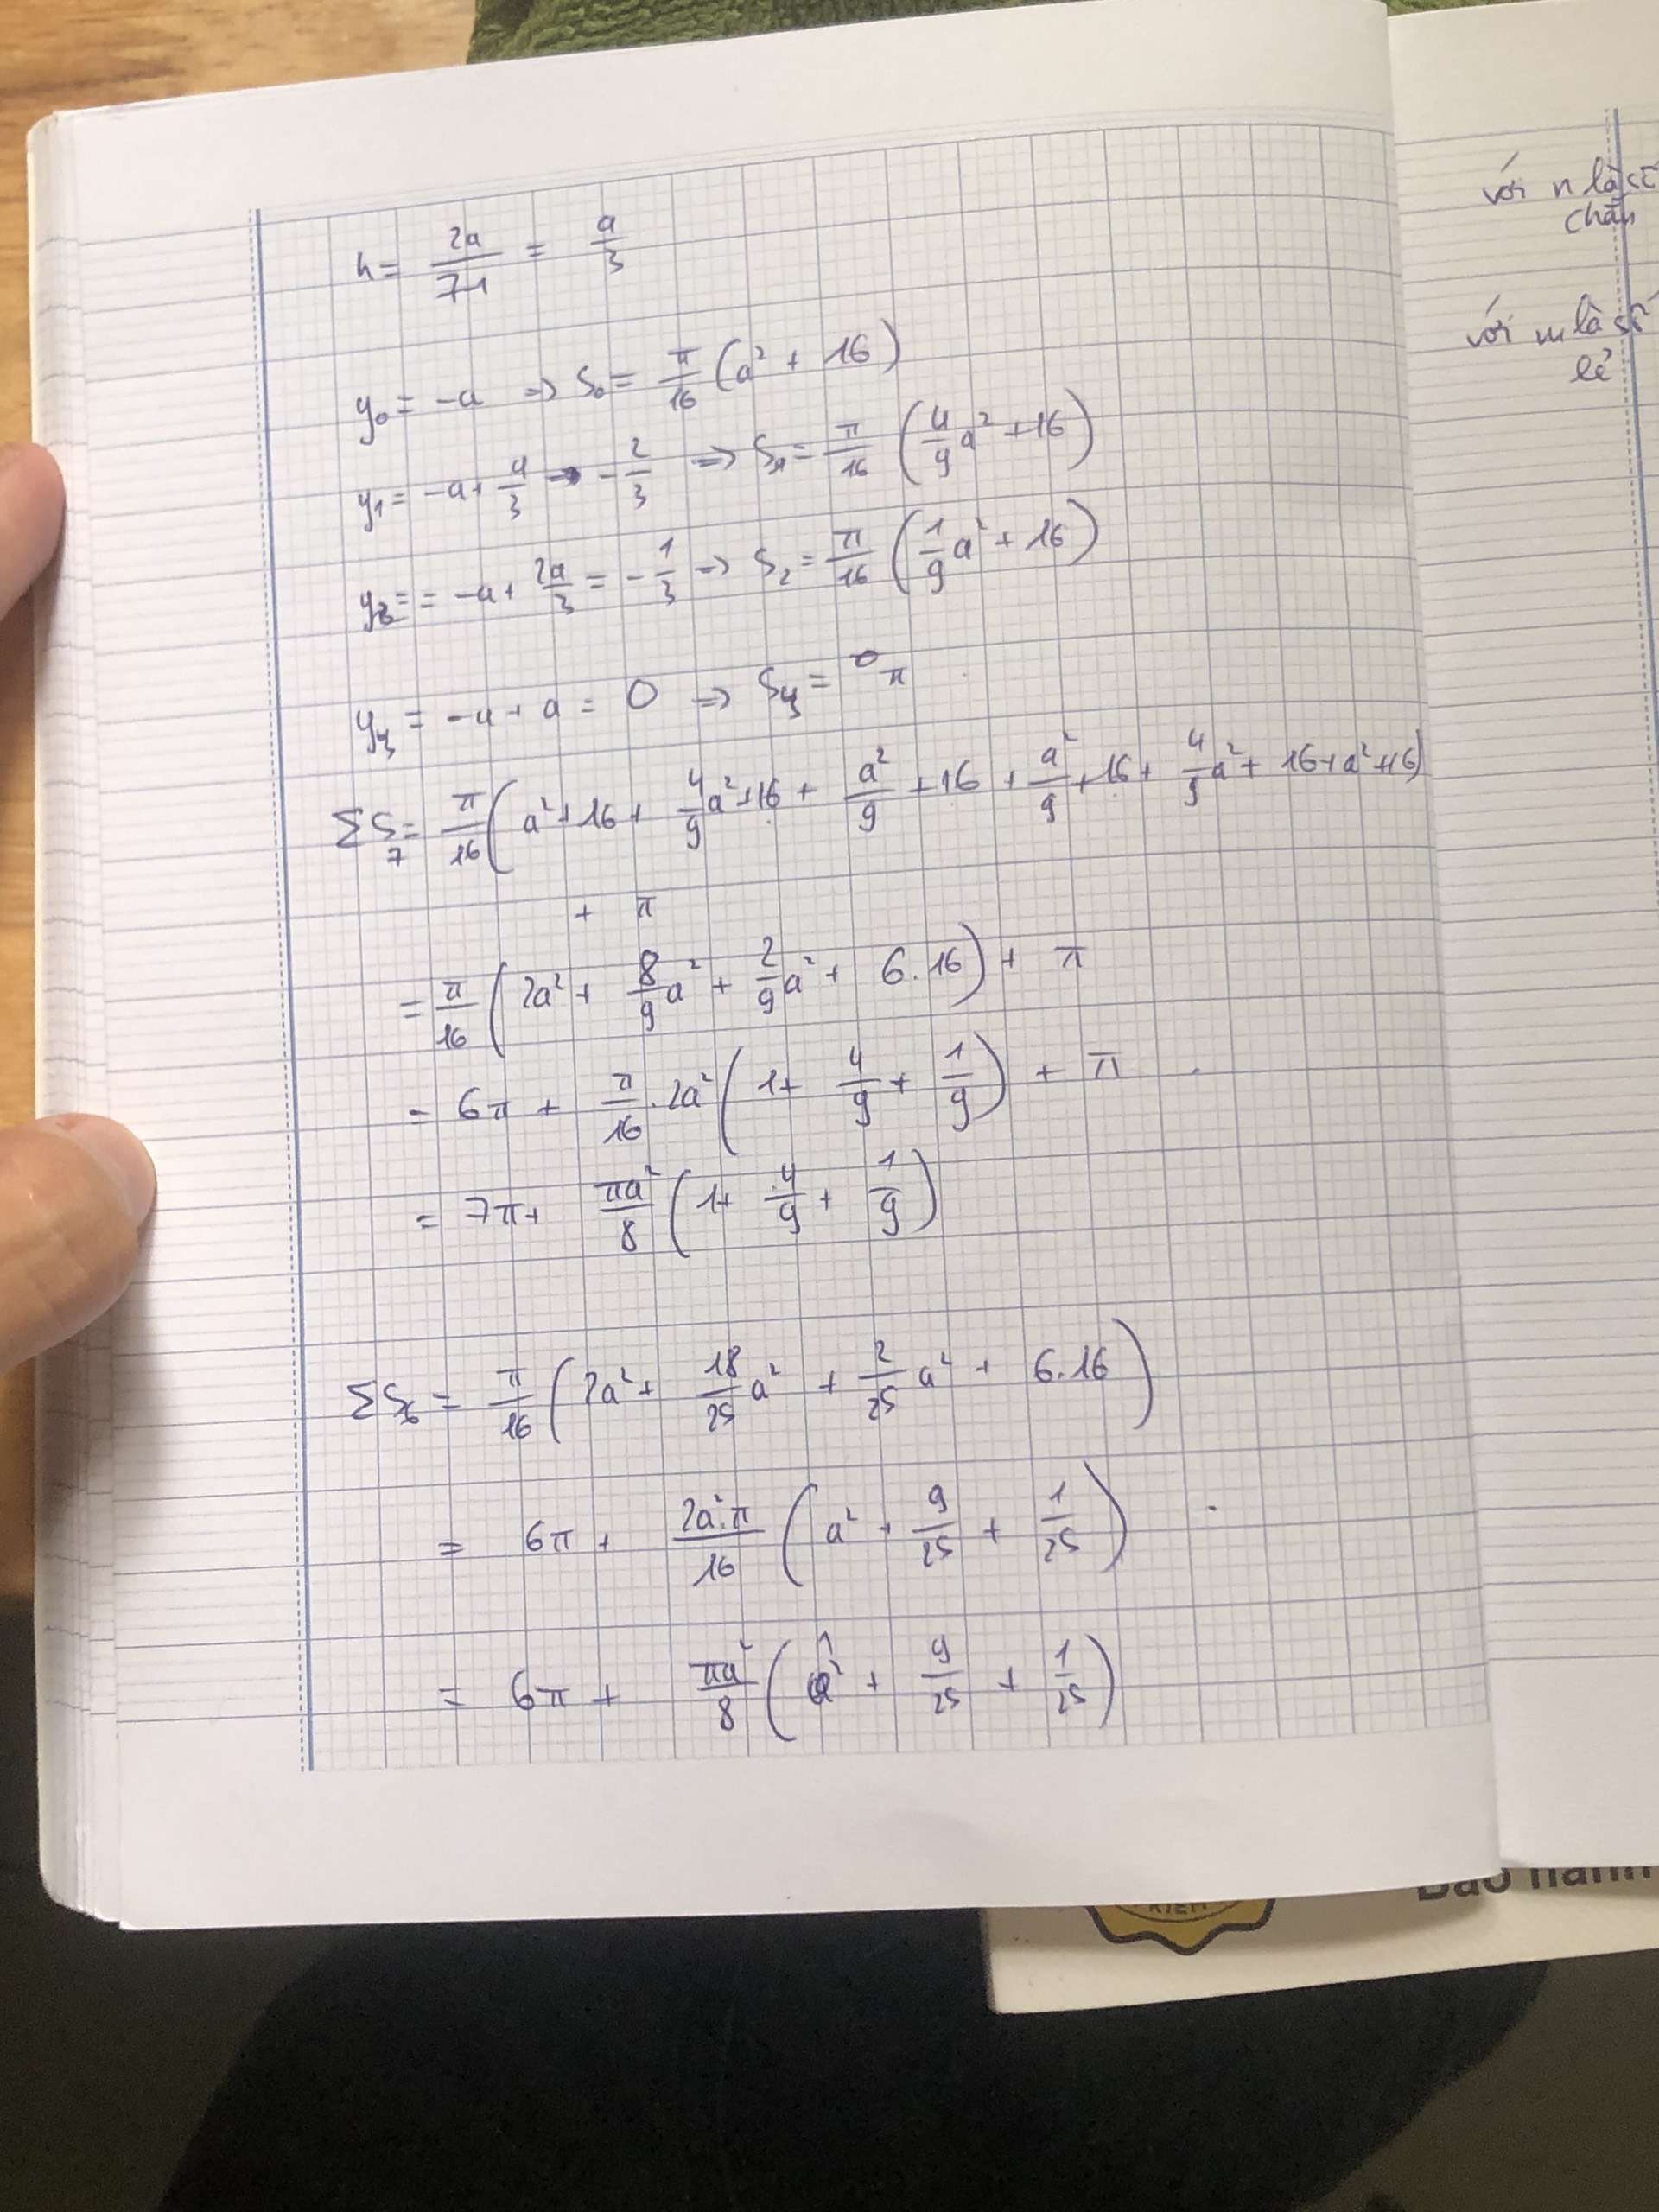 h = 2a/7-1 = a/3
y₀ = -a → S₀ = π/16 (a² + 16)
y₁ = -a + a/3 → -2/3 => S₁ = π/16 (4/9 a² + 16)
y₂ = = -a + 2a/3 = -1/3 → S₂ = π/16 (1/9 a² + 16)
y₃ = -a + a = 0 => S₃ = π
ΣS₇ = π/16 (a² + 16 + 4/9 a² + 16 + a²/9 + 16 + a²/9 + 16 + 4/9 a² + 16 + a² + 16)
+ π
= π/16 (2a² + 8/9 a² + 2/9 a² + 6.16) + π
= 6π + π/16 . 2a² (1 + 4/9 + 1/9) + π
= 7π + πa²/8 (1 + 4/9 + 1/9)
ΣS₆ = π/16 (2a² + 18/25 a² + 2/25 a² + 6.16)
= 6π + 2a².π/16 (a² + 9/25 + 1/25)
= 6π + πa²/8 (1 + 9/25 + 1/25)
với n là số
chẵn
với n là số
lẻ